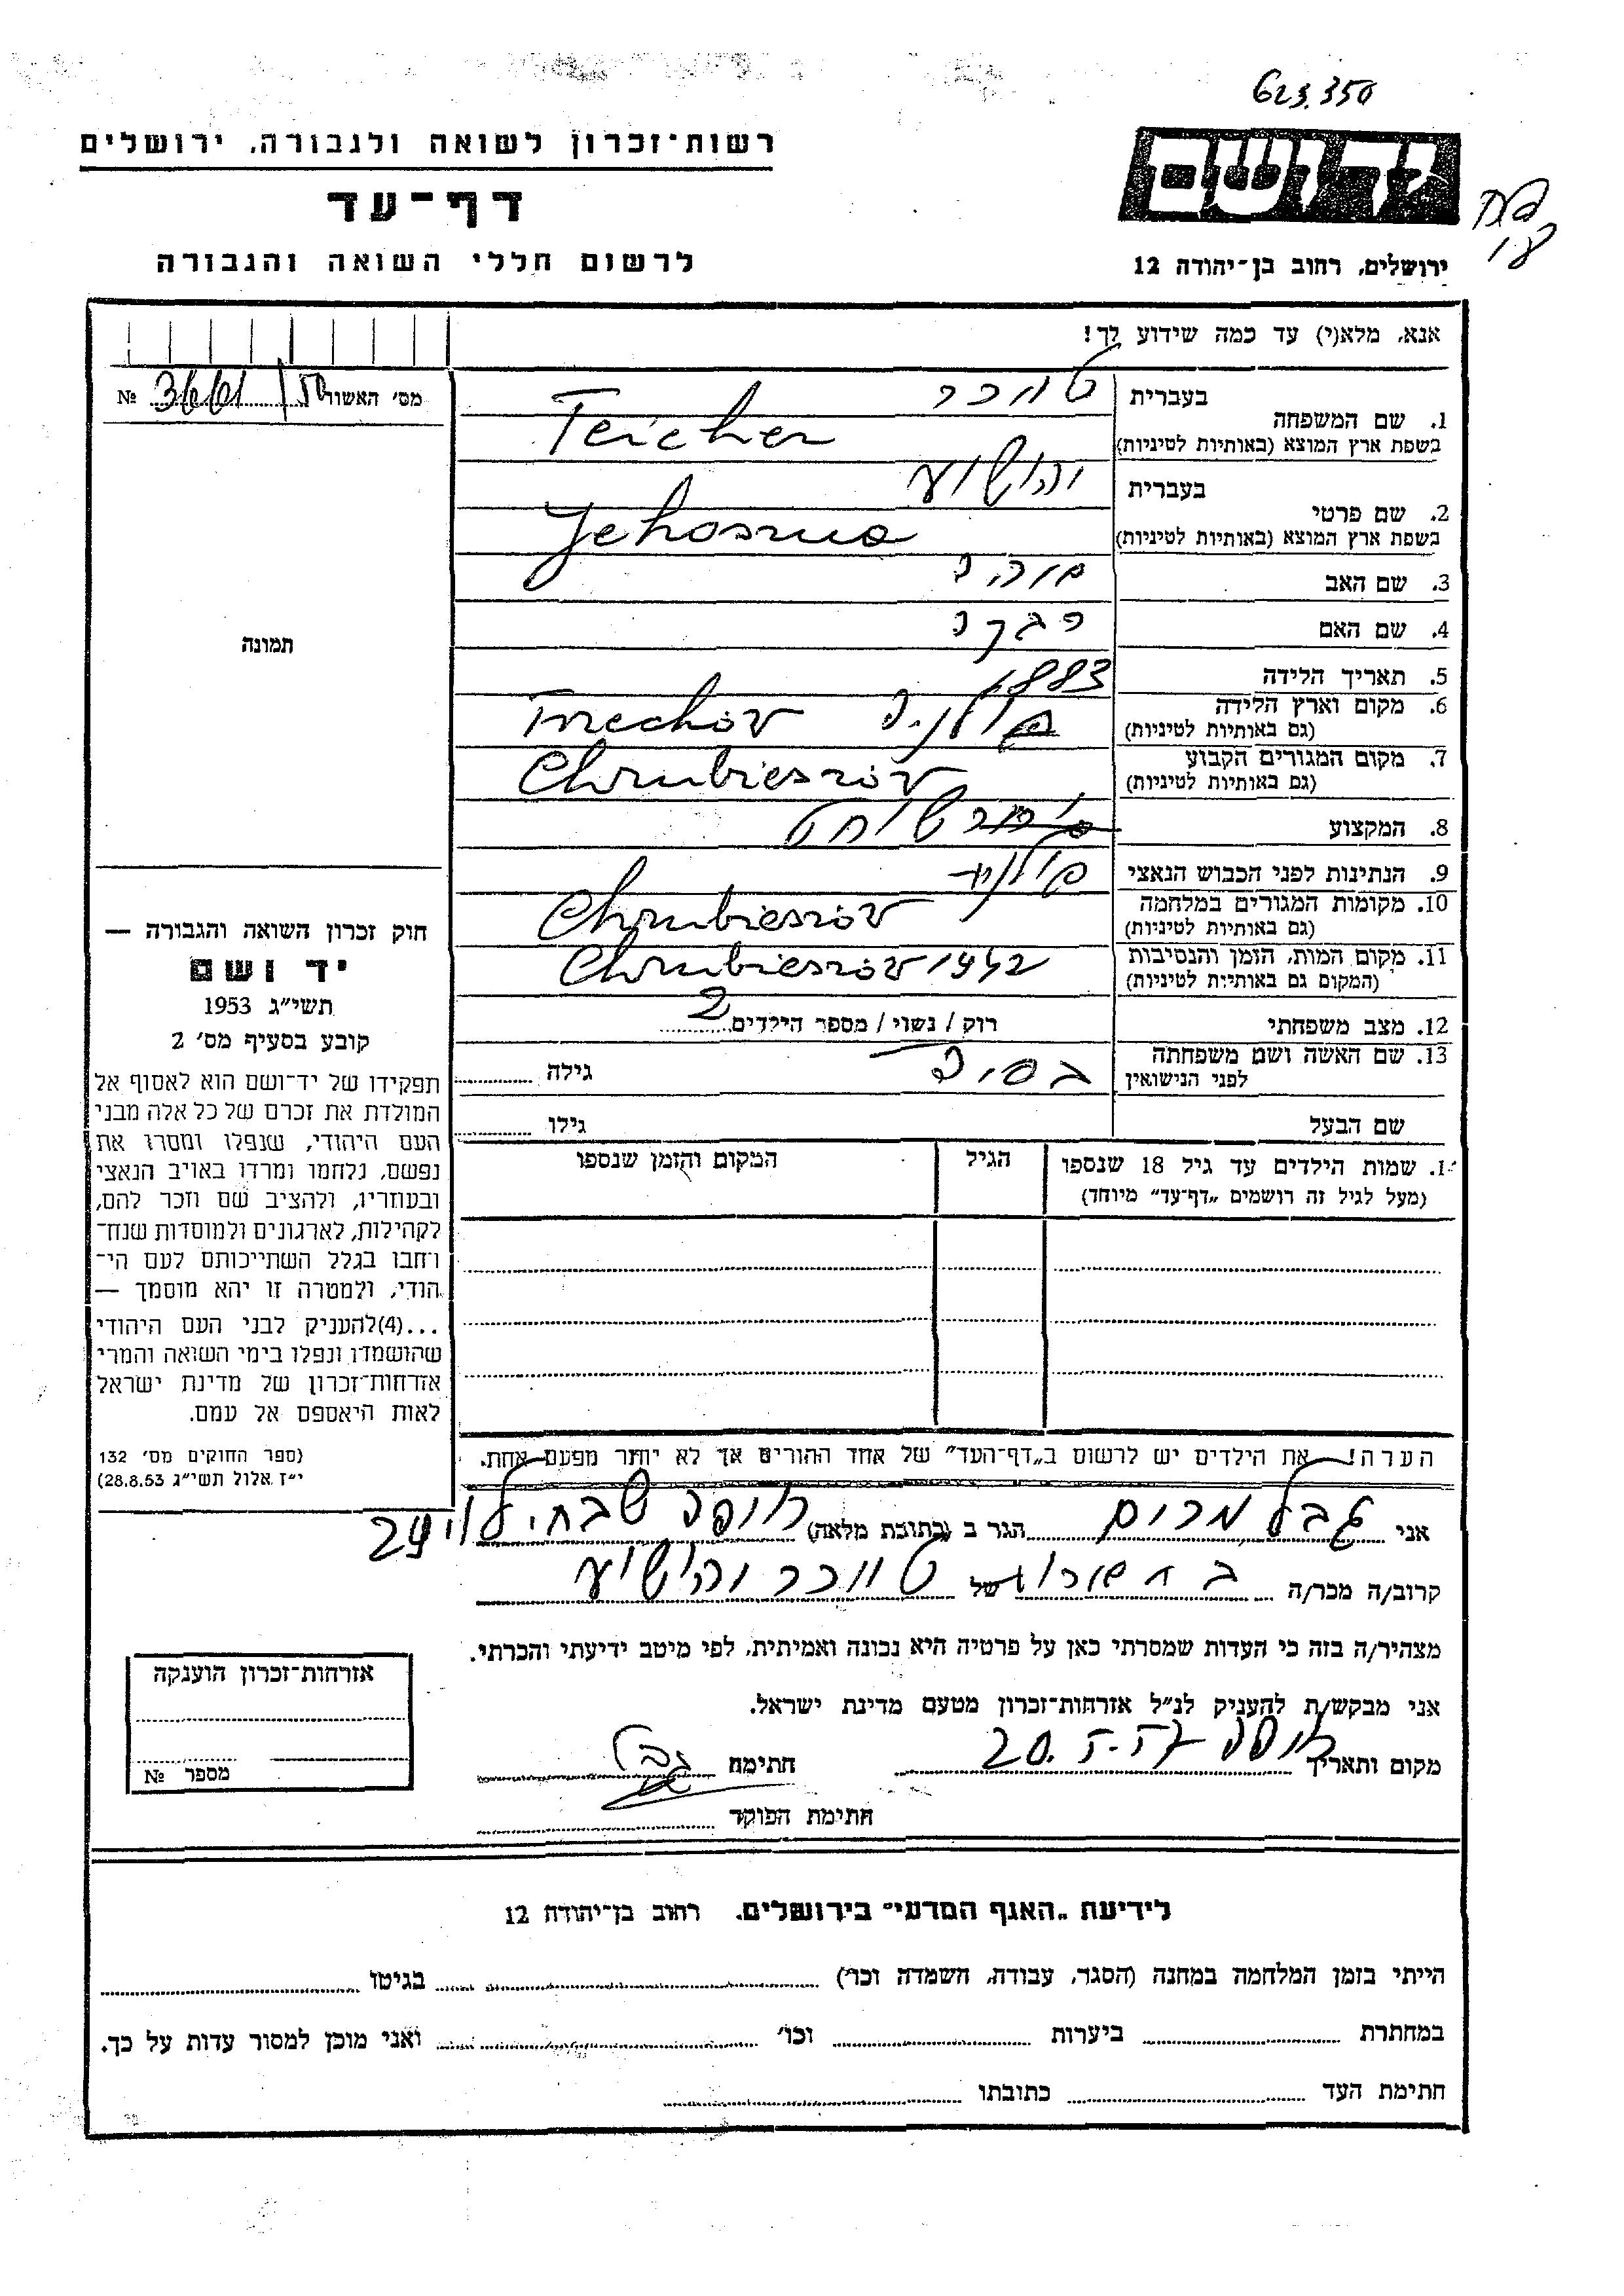 623.350
רשות־זכרון לשואה ולגבורה, ירושלים
יד ושם
דף־עד
לרשום חללי השואה והגבורה
ירושלים, רחוב בן־יהודה 12
אנא, מלא(י) עד כמה שידוע לך!
מס׳ האשור № 
1. שם המשפחה
בעברית טויכר
בשפת ארץ המוצא (באותיות לטיניות) Teicher
2. שם פרטי
בעברית יהושוע
בשפת ארץ המוצא (באותיות לטיניות) Jehosrua
3. שם האב
4. שם האם רבקה
5. תאריך הלידה 1883
6. מקום וארץ הלידה (גם באותיות לטיניות) פולניה
7. מקום המגורים הקבוע (גם באותיות לטיניות) Chrubieszów
8. המקצוע
9. הנתינות לפני הכבוש הנאצי
10. מקומות המגורים במלחמה (גם באותיות לטיניות) Chrubieszów
11. מקום המות, הזמן והנסיבות (המקום גם באותיות לטיניות) Chrubieszów 1942
12. מצב משפחתי רוק / נשוי / מספר הילדים 2
13. שם האשה ושם משפחתה לפני הנישואין גילה
שם הבעל גילו
תמונה
חוק זכרון השואה והגבורה —
יד ושם
תשי״ג 1953
קובע בסעיף מס׳ 2
תפקידו של יד־ושם הוא לאסוף אל
המולדת את זכרם של כל אלה מבני
העם היהודי, שנפלו ומסרו את
נפשם, נלחמו ומרדו באויב הנאצי
ובעוזריו, ולהציב שם וזכר להם,
לקהילות, לארגונים ולמוסדות שנח־
רחבו בגלל השתייכותם לעם הי־
הודי, ולמטרה זו יהא מוסמך —
...(4)להעניק לבני העם היהודי
שהושמדו ונפלו בימי השואה והמרי
אזרחות־זכרון של מדינת ישראל
לאות היאספם אל עמם.
(ספר החוקים מס׳ 132
י״ז אלול תשי״ג 28.8.53)
שמות הילדים עד גיל 18 שנספו
(מעל לגיל זה רושמים „דף־עד” מיוחד)
הגיל
המקום והזמן שנספו
הערה! את הילדים יש לרשום ב„דף־העד” של אחד ההורים אך לא יותר מפעם אחת.
אני הגר ב (כתובת מלאה) חיפה
קרוב/ה מכר/ה של טויכר יהושוע
מצהיר/ה בזה כי העדות שמסרתי כאן על פרטיה היא נכונה ואמיתית, לפי מיטב ידיעתי והכרתי.
אני מבקש/ת להעניק לנ״ל אזרחות־זכרון מטעם מדינת ישראל.
מקום ותאריך חתימה
חתימת הפוקד
אזרחות־זכרון הוענקה
מספר №
לידיעת „האגף המדעי” בירושלים, רחוב בן־יהודה 12
הייתי בזמן המלחמה במחנה (הסגר, עבודה, השמדה וכו׳) בגיטו
במחתרת ביערות וכו׳ ואני מוכן למסור עדות על כך.
חתימת העד כתובתו